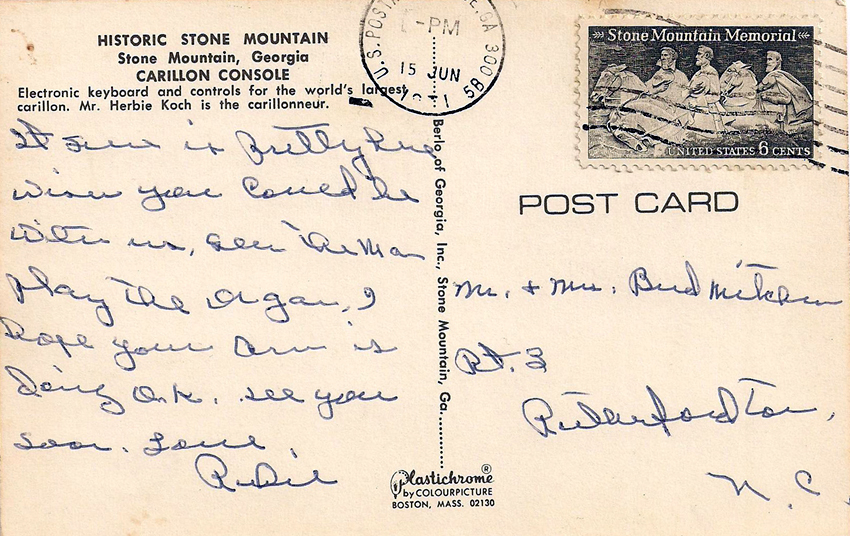 HISTORIC STONE MOUNTAIN
Stone Mountain, Georgia
CARILLON CONSOLE
Electronic keyboard and controls for the world's largest
carillon. Mr. Herbie Koch is the carillonneur.
It sure is Pretty here
wish you could be
with us, seen the Man
play the organ, I
hope your arm is
doing O.K. see you
soon. Love
Berlo of Georgia, Inc., Stone Mountain, Ga.
Plastichrome ®
by COLOURPICTURE
BOSTON, MASS. 02130
U.S. POSTA GA 300
PM
15 JUN
58
Stone Mountain Memorial
UNITED STATES 6 CENTS
POST CARD
Mr. & Mrs. Bud
Rt. 3
Rutherfordton,
N.C.